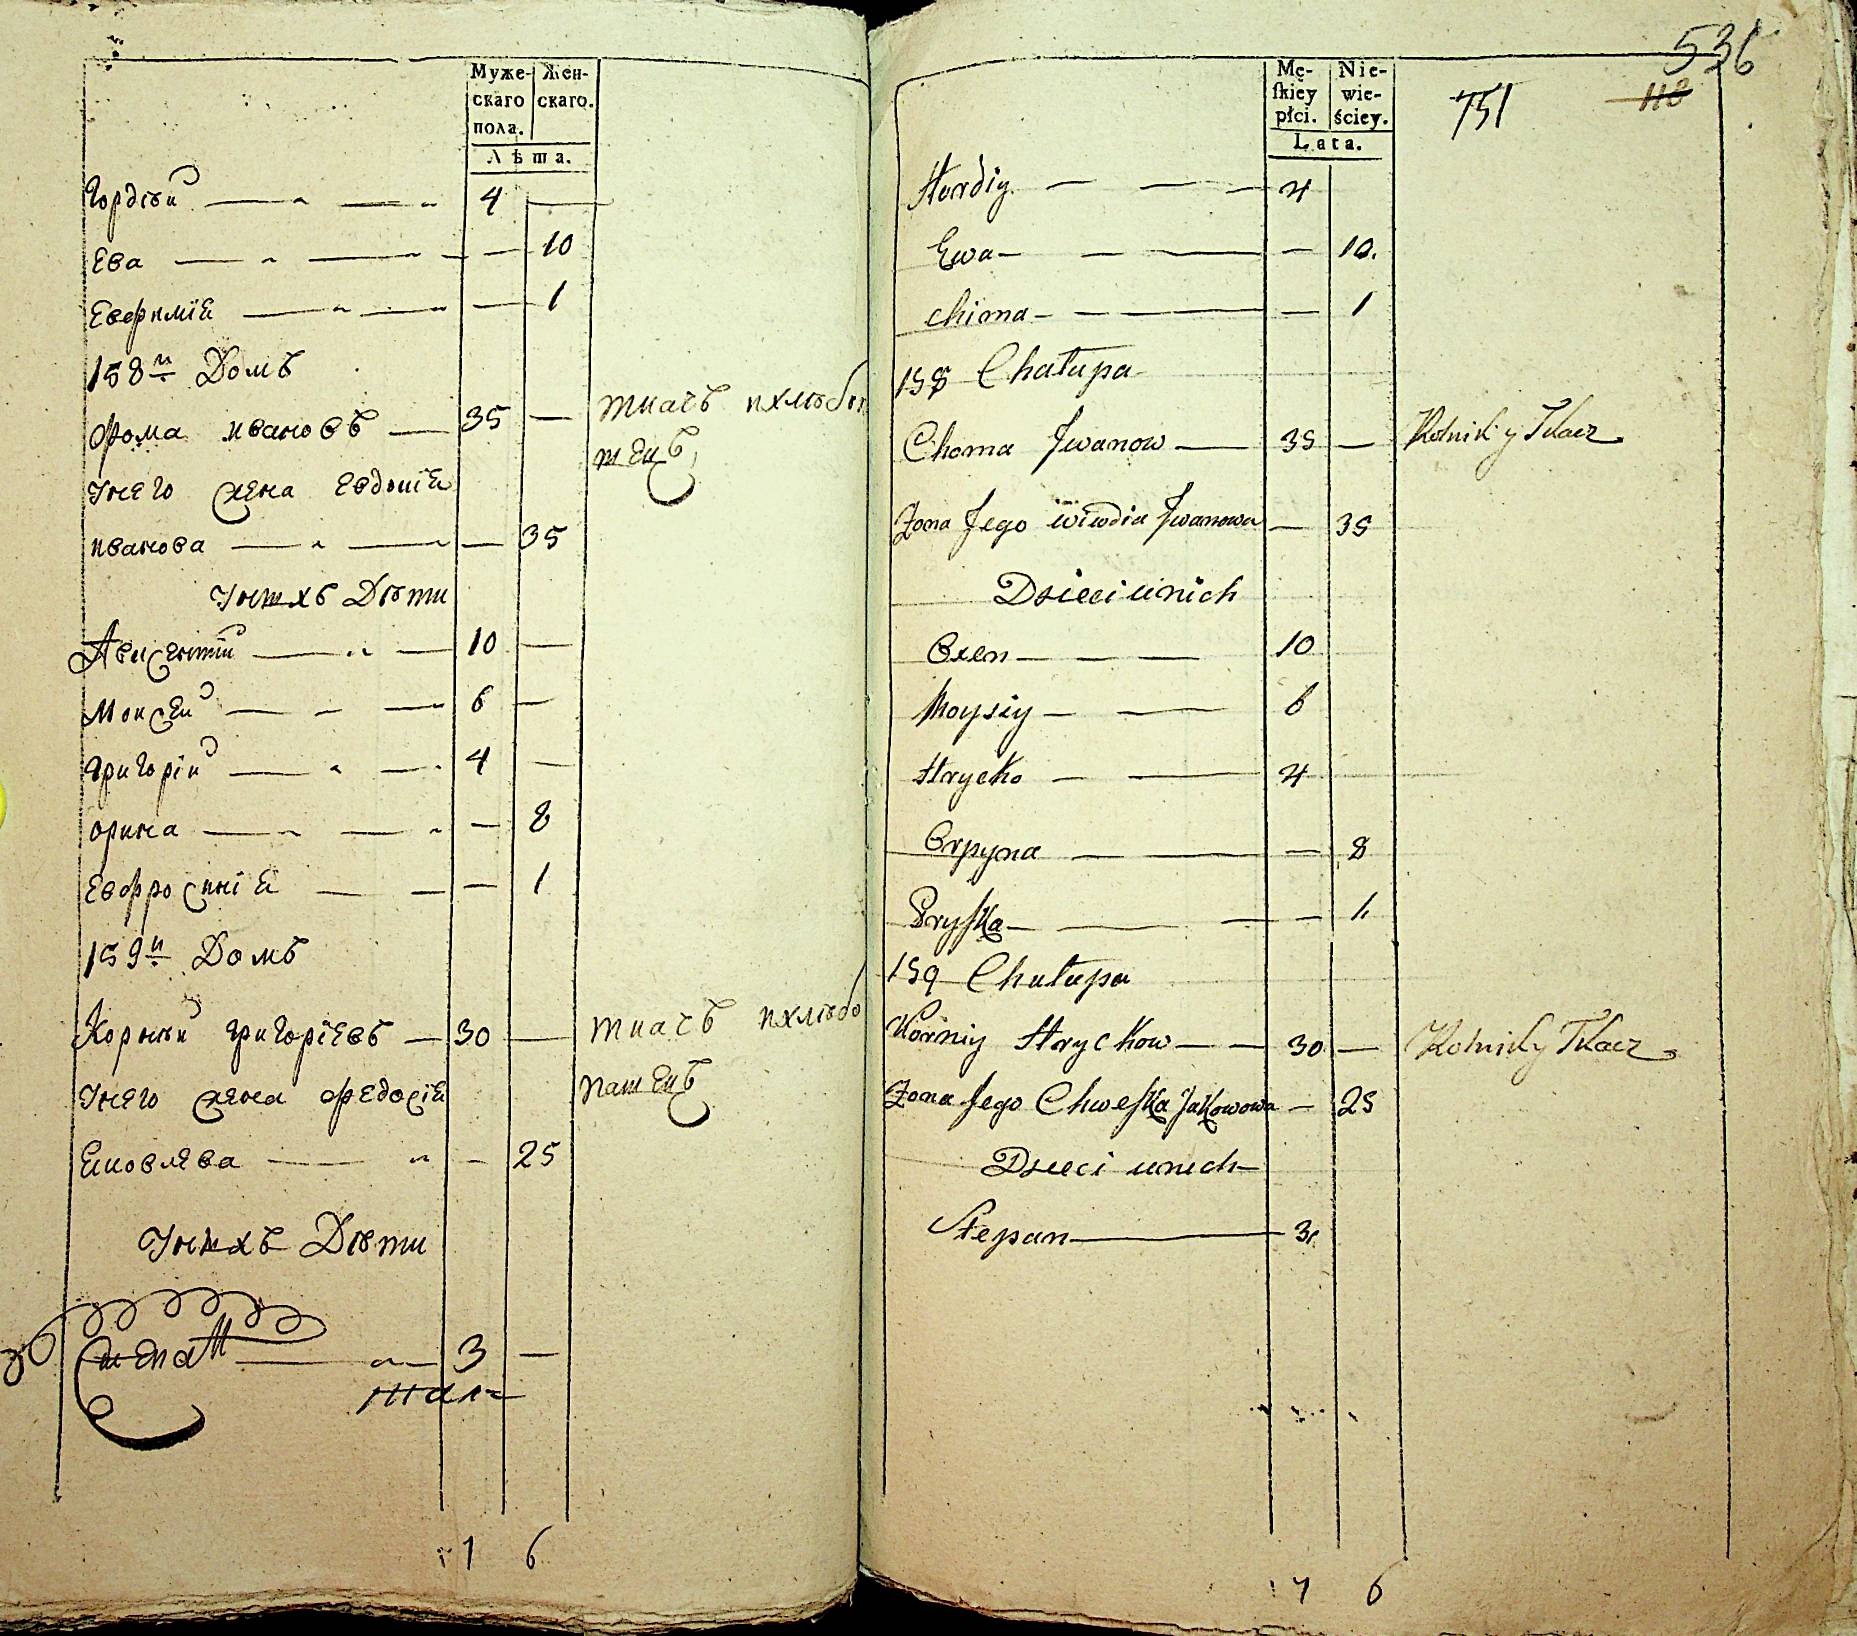 Муже-
скаго
пола.
Жен-
скаго.
Лѣта.
Гордѣй 4
Ева 10
Евфимїя 1
158й Домъ
Фома ивановъ 35 ткачъ ихлѣбоп
шецъ
Унего жена Евдокїя
иванова 35
Унихъ Дѣти
Авксентїй 10
Моисей 6
григорїй 4
орина 8
Евфросинїя 1
159й Домъ
Корнѣй григорїевъ 30 ткачъ ихлѣбо
пашецъ
Унего жена федосїя
Яковлева 25
Унихъ Дѣти
Степан 3
7 6
536
118
751
Mę-
ſkiey
płci.
Nie-
wie-
ściey.
Lata.
Hordiy 4
Ewa 10.
Chima 1
158 Chałupa
Choma Jwanow 35 Rolnik y Tkacz
Żona Jego Wiwdia Jwanowa 35
Dzieci unich
Oxen 10
Moysiy 6
Hrycko 4
Oryna 8
Pryſka 1.
159 Chałupa
Korniy Hryckow 30 Rolnik y Tkacz
Żona Jego Chweſka Jakowowa 25
Dzieci unich
Stepan 3.
7 6